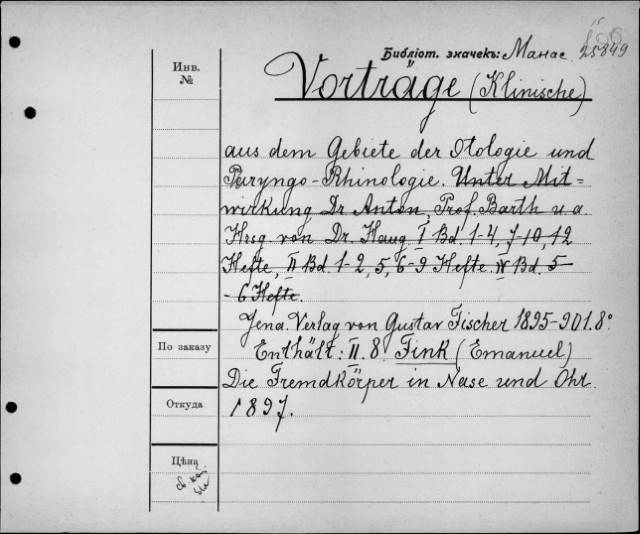 Библіот. значекъ: Манас 25849
Инв.
№
Vorträge (Klinische)
aus dem Gebiete der Otologie und
Pharyngo-Rhinologie. Unter Mit=
wirkung Dr Anton, Prof. Barth u.a.
Hrsg. von Dr. Haug. I Bd. 1-4, 7-10, 12
Hefte, II Bd. 1-2, 5, 6-9 Hefte. IV Bd. 5-
-6 Hefte.
Jena. Verlag von Gustav Fischer 1895-901. 8°
По заказу
Enthält: II. 8. Fink (Emanuel)
Die Fremdkörper in Nase und Ohr.
Откуда
1897.
Цѣна